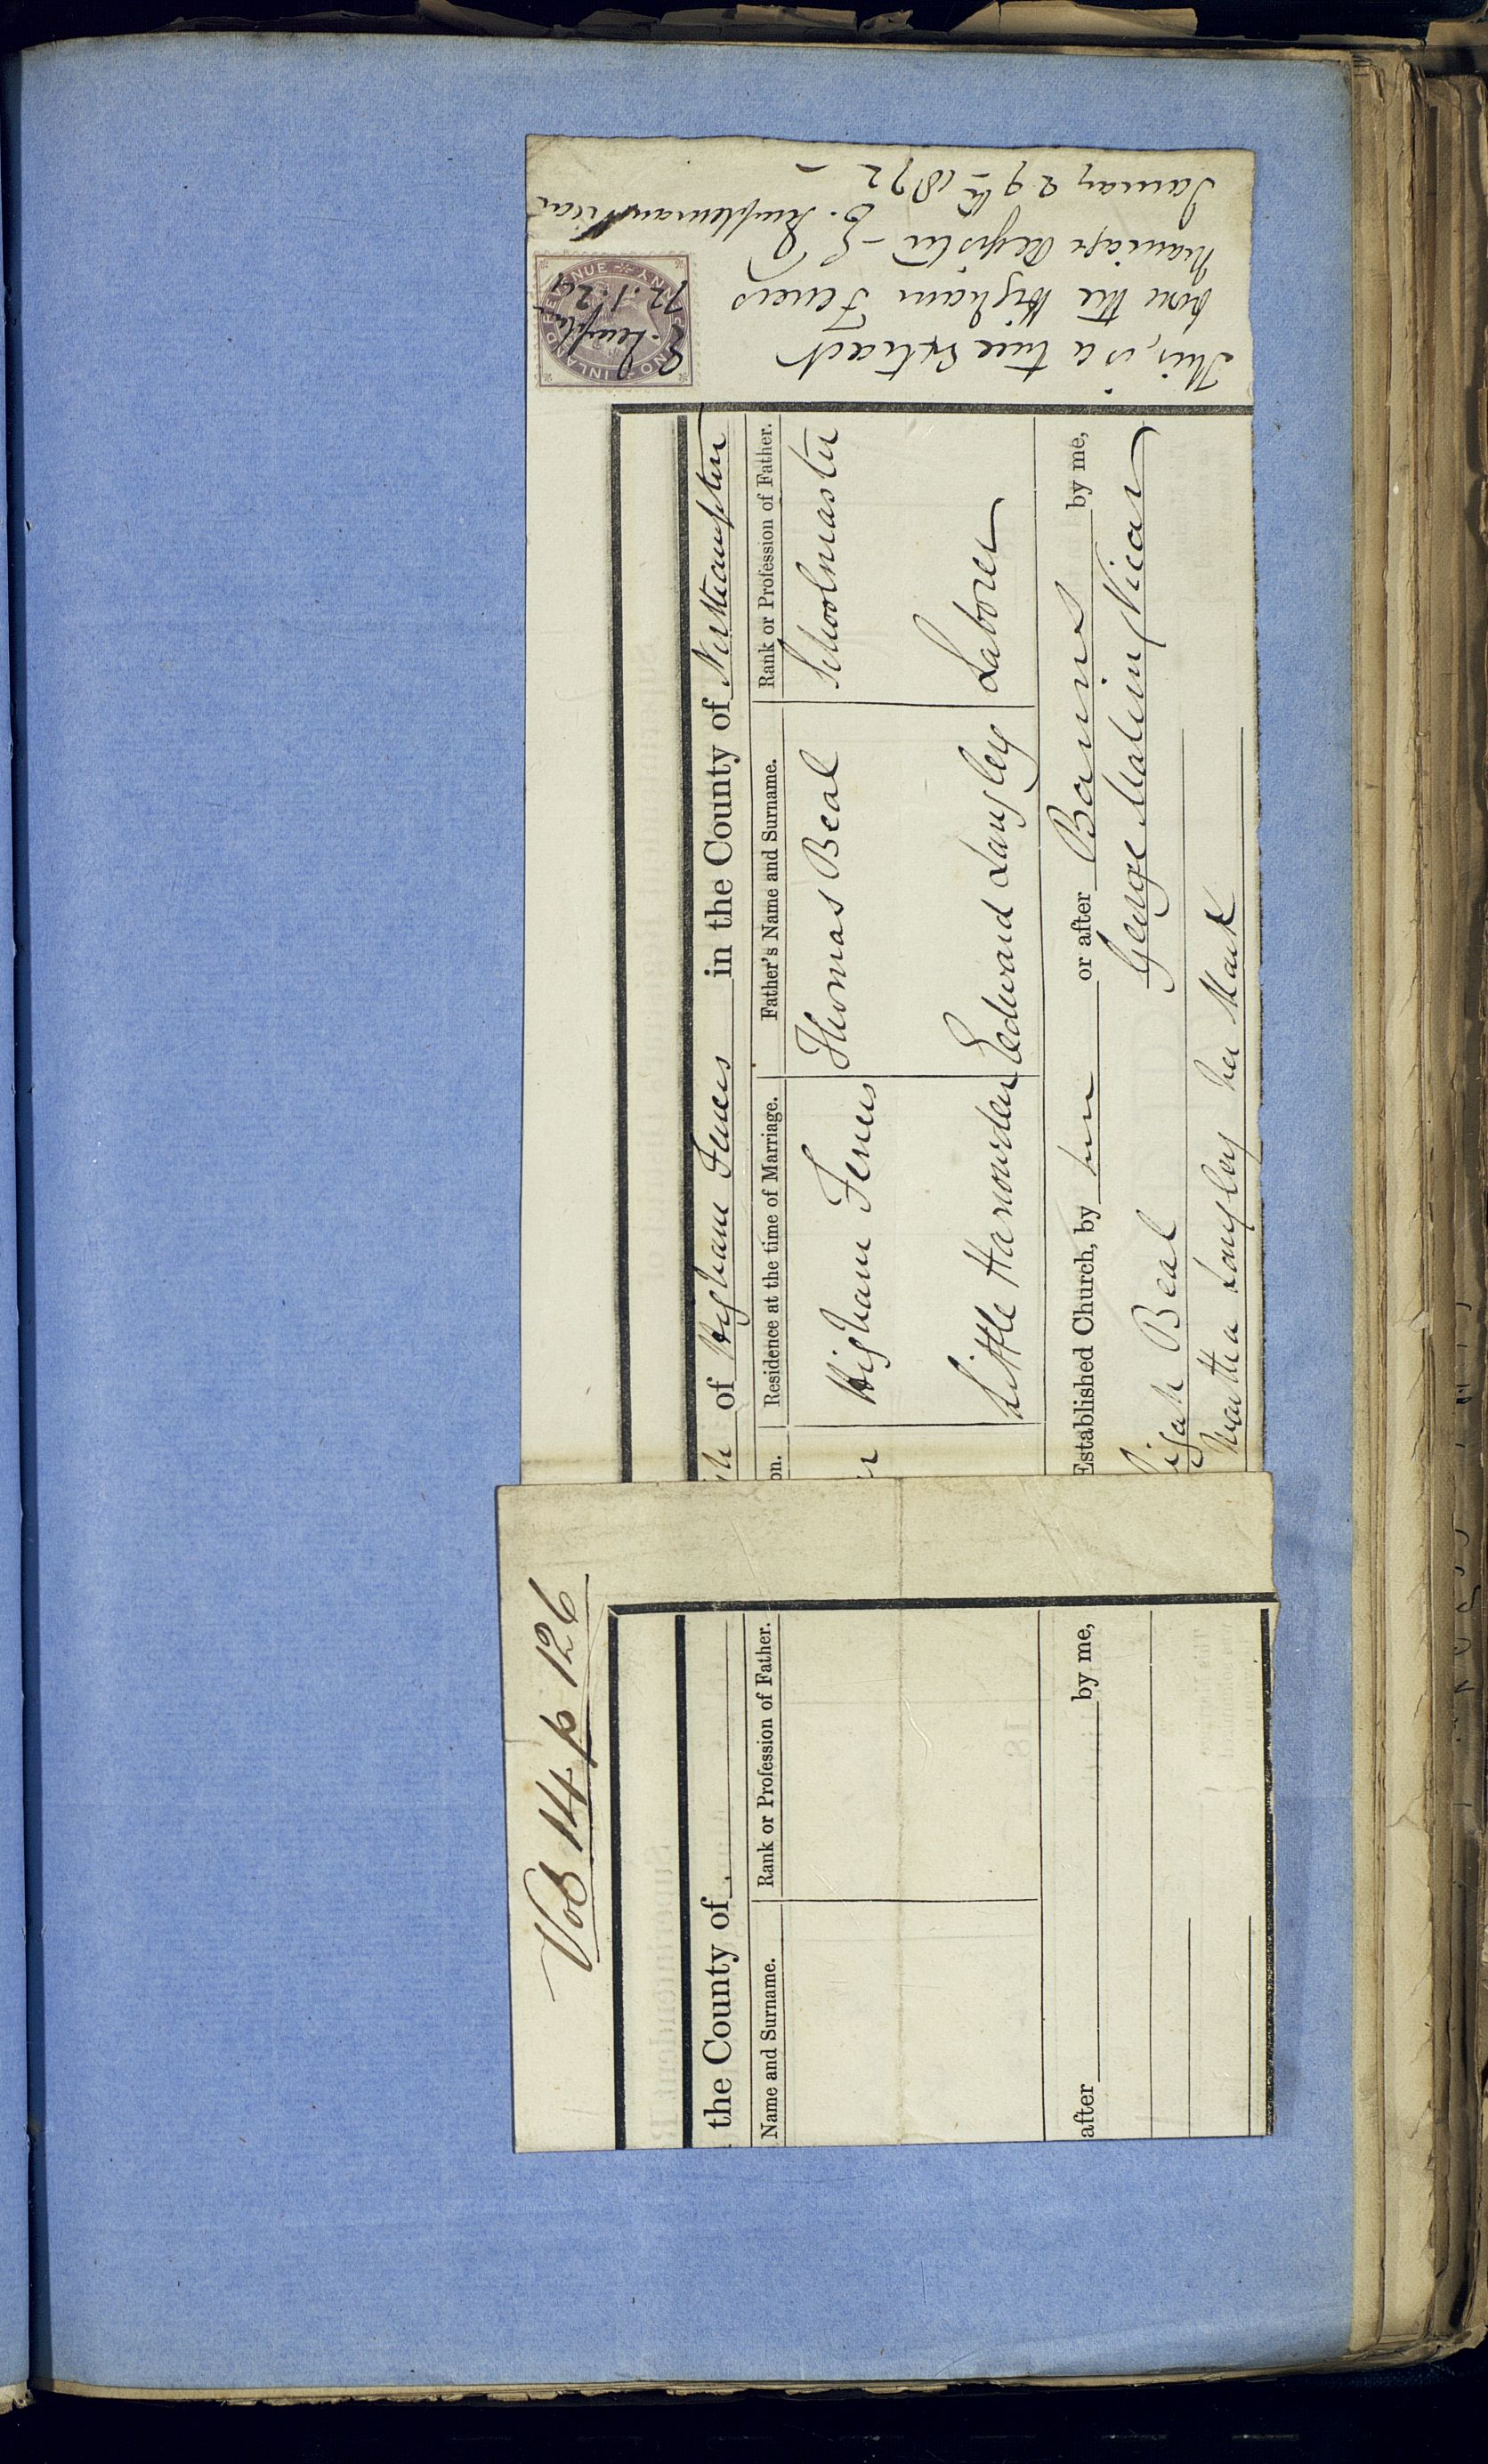 Vol 14 p 126
the County of
Name and Surname.
Rank or Profession of Father.
after by me,
of Higham Ferrers in the County of Northampton
on. Residence at the time of Marriage. Father's Name and Surname. Rank or Profession of Father.
Higham Ferrers Thomas Beal Schoolmaster
Little Harrowden Edward Langley Laborer
Established Church, by or after Banns by me,
George Malim Vicar
Beal
Martha Langley her Mark X
This is a true Extract
from the Higham Ferrers
Marriage Register — E. Templeman Vicar
January 29th 1872
INLAND REVENUE ONE PENNY
E. Templeman